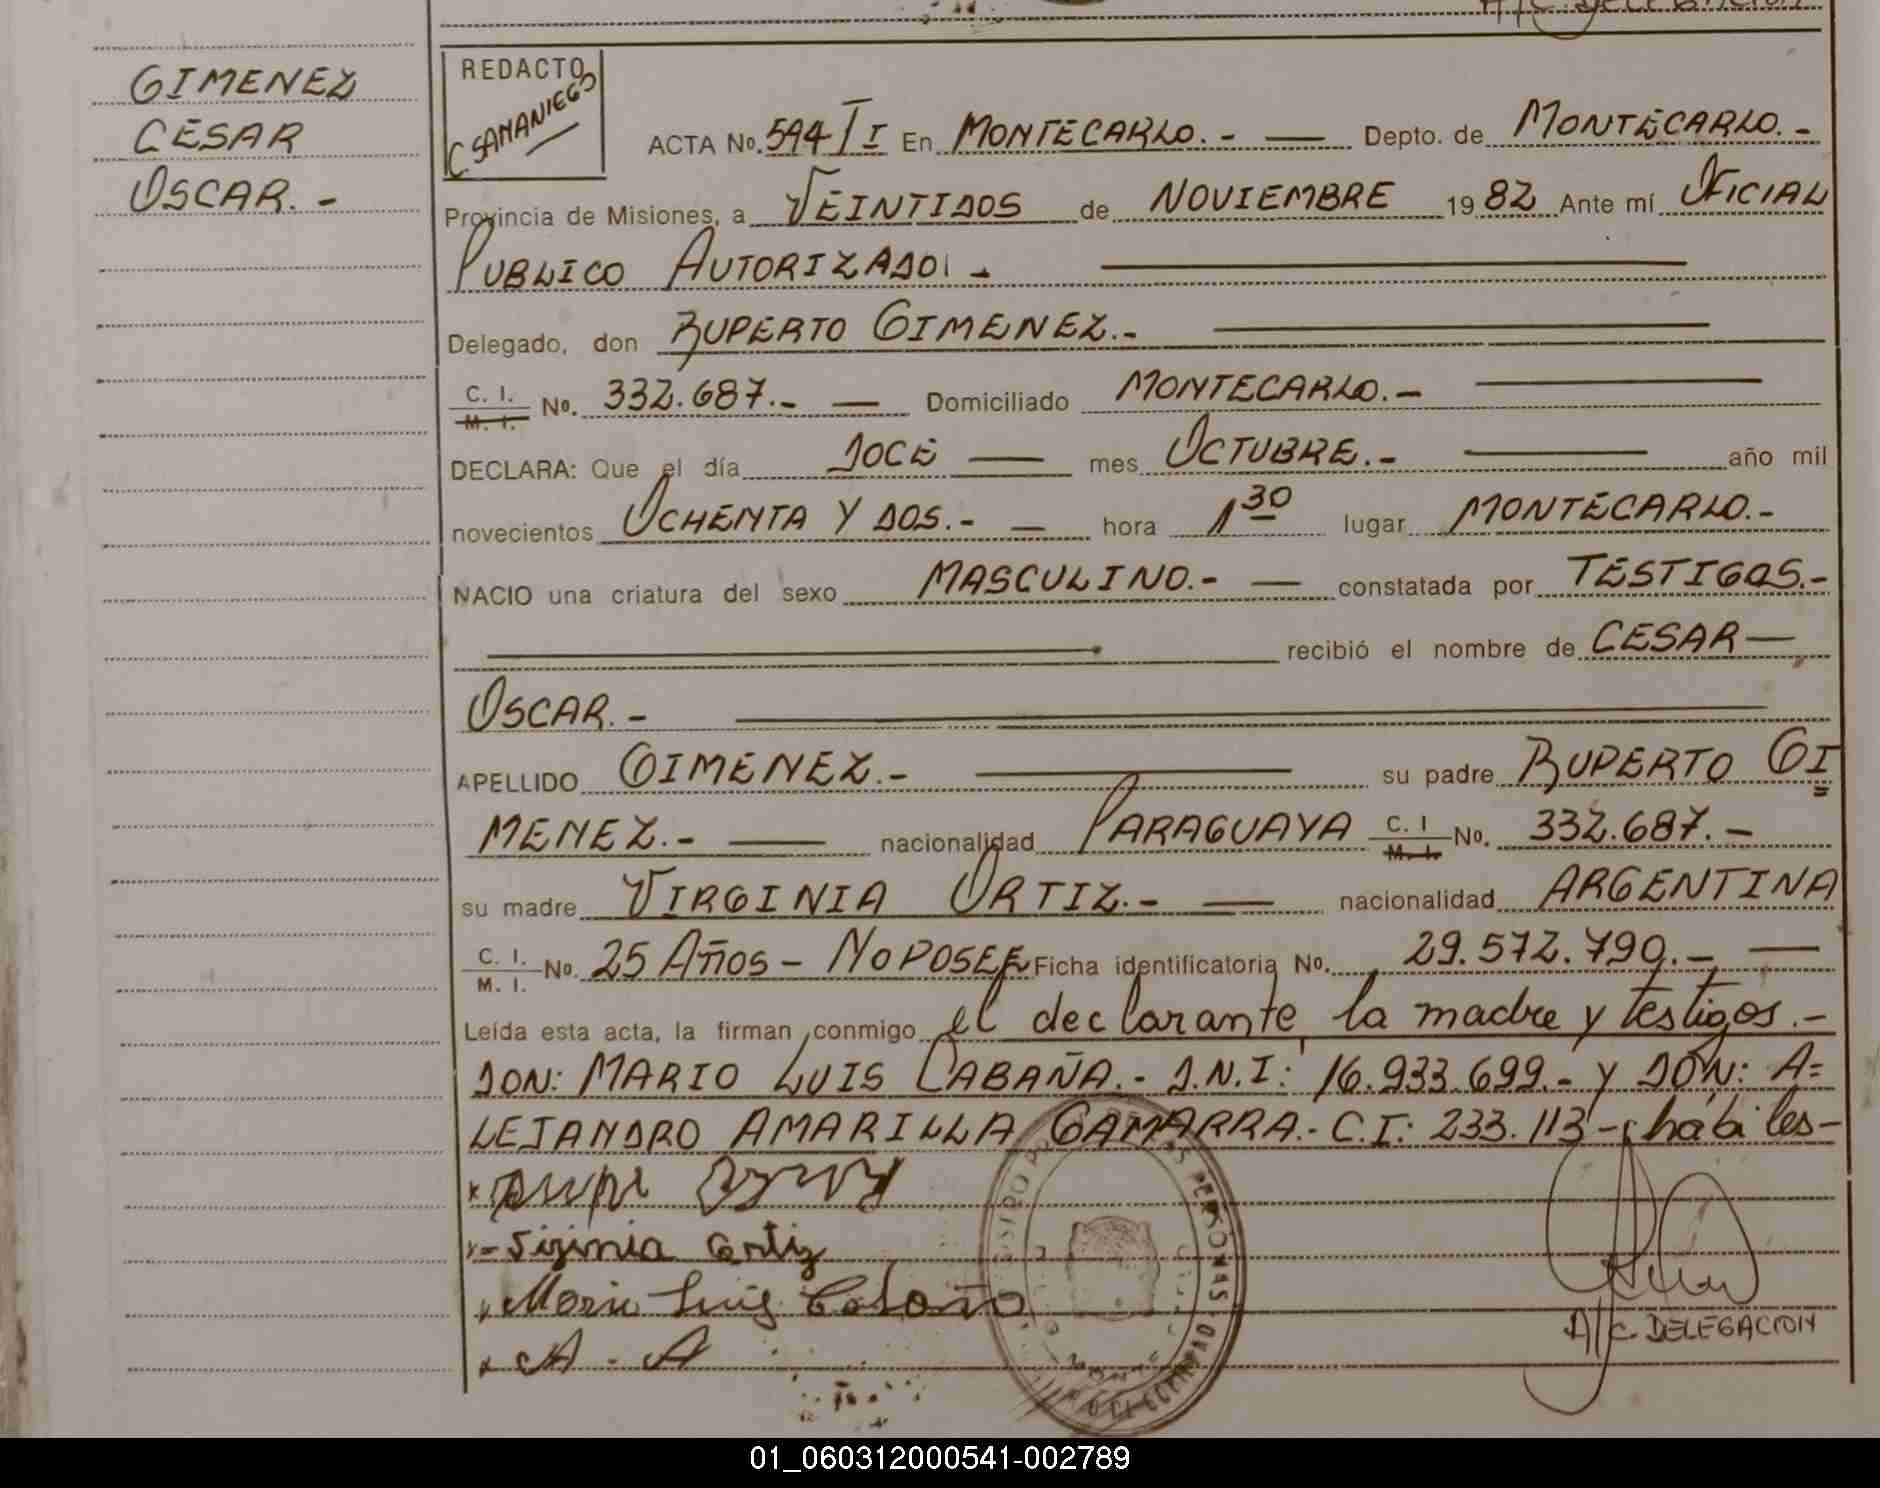 A/C. DELEGACION
GIMENEZ
CESAR
OSCAR.-
REDACTO
C SAMANIEGO
ACTA No. 594 T I En MONTECARLO.- — Depto. de MONTECARLO.-
Provincia de Misiones, a VEINTIDOS de NOVIEMBRE 1982 Ante mí OFICIAL
PUBLICO AUTORIZADO.-
Delegado, don RUPERTO GIMENEZ.-
C. I. M. I. No. 332.687.- — Domiciliado MONTECARLO.-
DECLARA: Que el día DOCE — mes OCTUBRE.- — año mil
novecientos OCHENTA Y DOS.- — hora 1 30 lugar MONTECARLO.-
NACIO una criatura del sexo MASCULINO.- — constatada por TESTIGOS.-
recibió el nombre de CESAR —
OSCAR.-
APELLIDO GIMENEZ.- — su padre RUPERTO GI
MENEZ.- — nacionalidad PARAGUAYA C. I M. I. No. 332.687.-
su madre VIRGINIA ORTIZ.- — nacionalidad ARGENTINA
C. I. M. I. No. 25 AÑOS - NO POSEE Ficha identificatoria No. 29.572.790.- —
Leída esta acta, la firman conmigo el declarante, la madre y testigos.-
DON: MARIO LUIS CABAÑA.- D.N.I: 16.933.699.- Y DON: A=
LEJANDRO AMARILLA GAMARRA.- C.I: 233.113 - habiles-
Virginia Ortiz
Mario Luis Cabaña
A - A
PERSONAS
A/C. DELEGACION
01_060312000541-002789